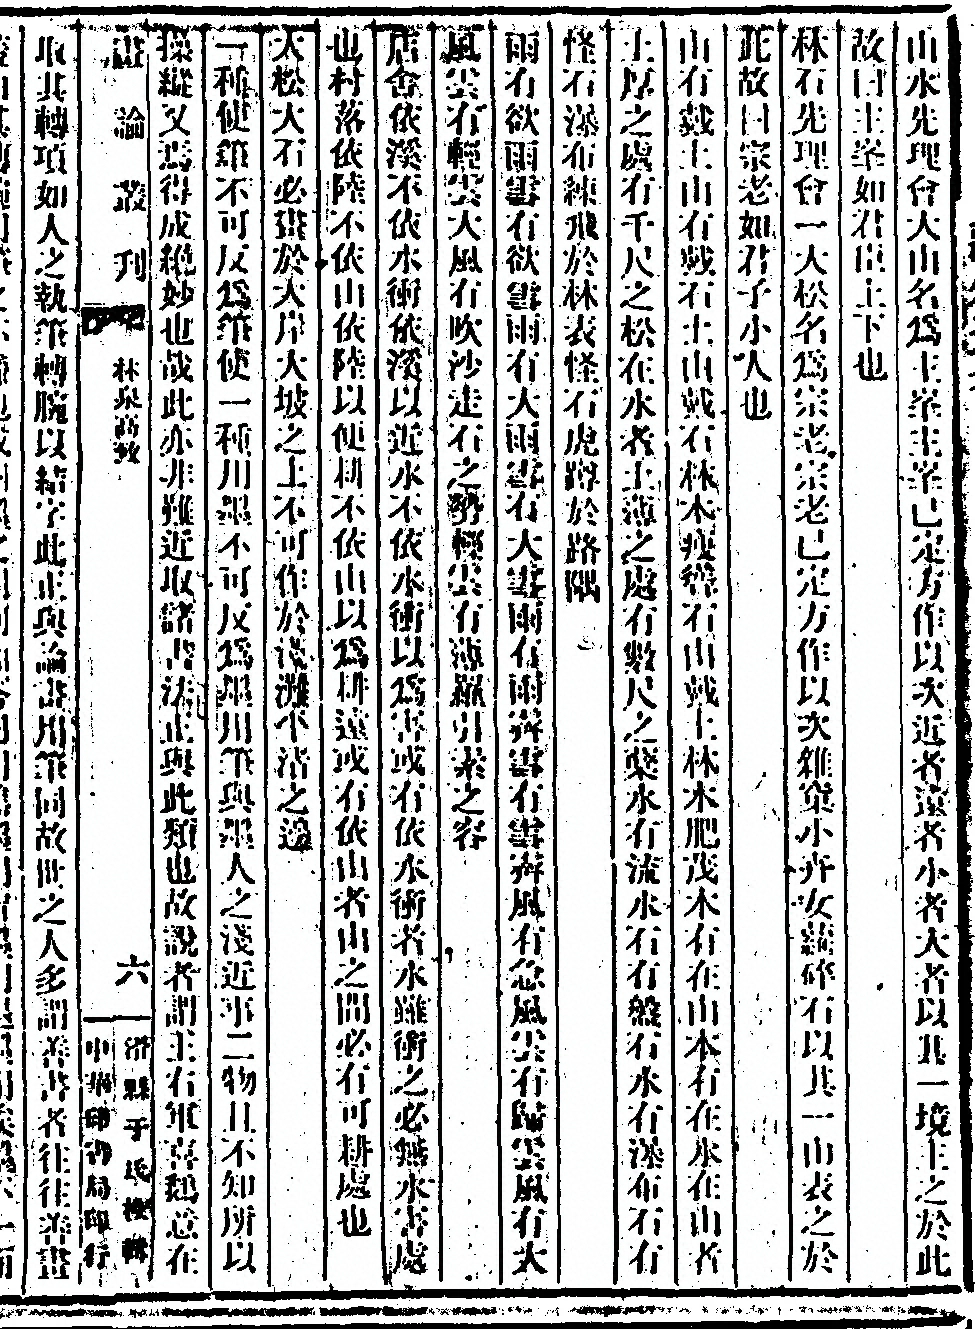 山水先理會大山名爲主峯主峯已定方作以次近者遠者小者大者以其一境主之於此
故曰主峯如君臣上下也
林石先理會一大松名爲宗老宗老已定方作以次雜窠小卉女蘿碎石以其一山表之於
此故曰宗老如君子小人也
山有戴土山有戴石土山戴石林木瘦聳石山戴土林木肥茂木有在山木有在水在山者
土厚之處有千尺之松在水者土薄之處有數尺之蘗水有流水石有盤石水有瀑布石有
怪石瀑布練飛於林表怪石虎蹲於路隅
雨有欲雨雪有欲雪雨有大雨雪有大雪雨有雨霽雪有雪霽風有急風雲有歸雲風有大
風雲有輕雲大風有吹沙走石之勢輕雲有薄羅引素之容
店舍依溪不依水衝依溪以近水不依水衝以爲害或有依水衝者水雖衝之必無水害處
也村落依陸不依山依陸以便耕不依山以爲耕遠或有依山者山之間必有可耕處也
大松大石必畫於大岸大坡之上不可作於淺灘平渚之邊
一種使筆不可反爲筆使一種用墨不可反爲墨用筆與墨人之淺近事二物且不知所以
操縱又焉得成絕妙也哉此亦非難近取諸書法正與此類也故說者謂王右軍喜鵝意在
畫論叢刊 林泉高致 六
潛縣于氏校輯
中華印書局印行
取其轉項如人之執筆轉腕以結字此正與論畫用筆同故世之人多謂善書者往往善畫